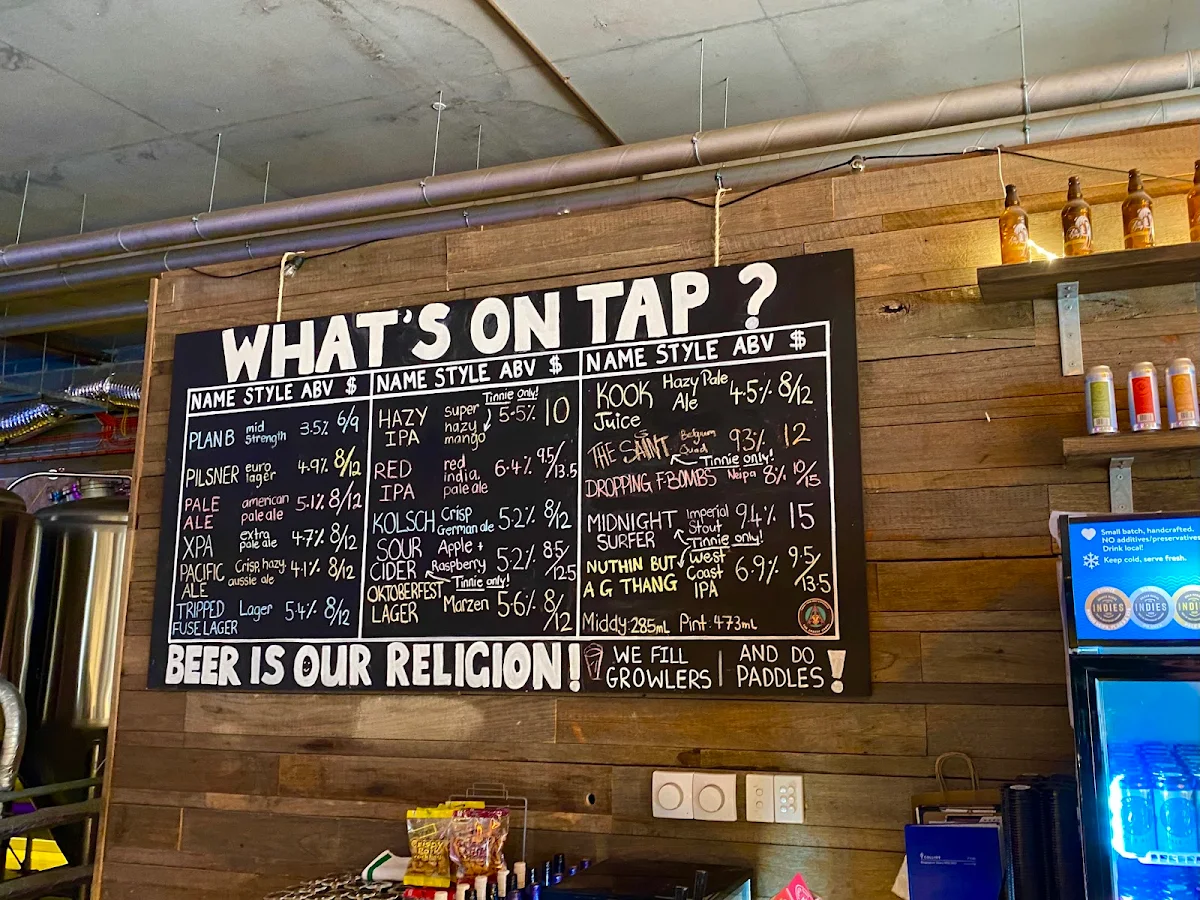 WHAT'S ON TAP ?
NAME STYLE ABV $
PLAN B mid strength 3.5% 6/9
PILSNER euro lager 4.9% 8/12
PALE ALE american pale ale 5.1% 8/12
XPA extra pale ale 4.7% 8/12
PACIFIC ALE Crisp, hazy, aussie ale 4.1% 8/12
TRIPPED FUSE LAGER Lager 5.4% 8/12
NAME STYLE ABV $
Tinnie Only!
HAZY IPA super hazy mango 5.5% 10
RED IPA red india pale ale 6.4% 9.5/13.5
KOLSCH Crisp German ale 5.2% 8/12
SOUR CIDER Apple + Raspberry 5.2% 8.5/12.5
Tinnie only!
OKTOBERFEST LAGER Marzen 5.6% 8/12
NAME STYLE ABV $
KOOK Juice Hazy Pale Ale 4.5% 8/12
THE SAINT Belgium Quad 9.3% 12
Tinnie only!
DROPPING F-BOMBS Neipa 8% 10/15
MIDNIGHT SURFER Imperial Stout 9.4% 15
Tinnie only!
NUTHIN BUT A G THANG West Coast IPA 6.9% 9.5/13.5
Middy: 285mL Pint: 473mL
BEER IS OUR RELIGION!
WE FILL GROWLERS
AND DO PADDLES!
Small batch, handcrafted.
NO additives/preservatives
Drink local!
Keep cold, serve fresh.
INDIES
INDIES
INDIES